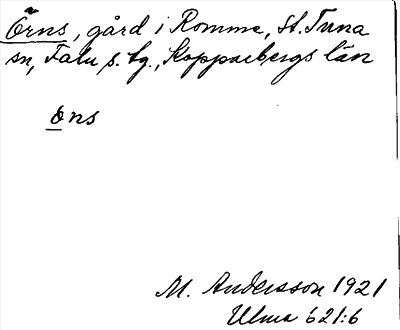 Örns, gård i Romme, St. Tuna
sn, Falu s. tg., Kopparbergs län
ö̱ns
M. Andersson 1921
Ulma 621:6